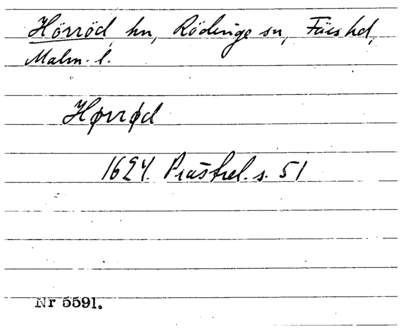 Hörröd hn, Rödinge sn, Färs hd,
Malm. l.
Hørrød
1624. Prästrel. s. 51
Nr 5591.